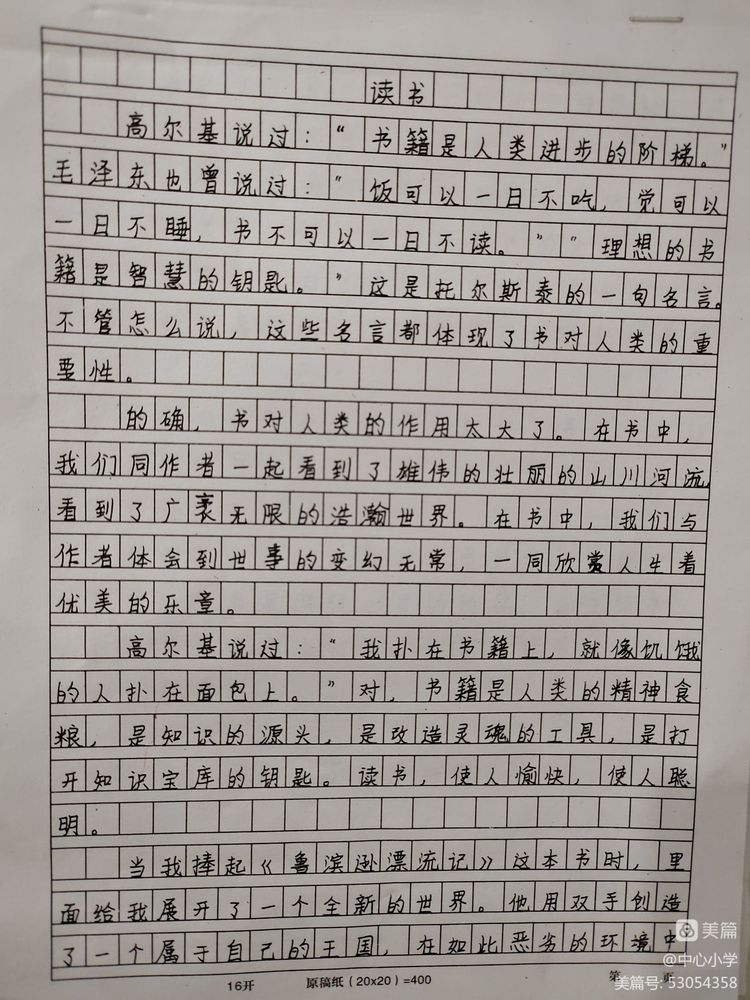 读书
高尔基说过：“书籍是人类进步的阶梯。”
毛泽东也曾说过：“饭可以一日不吃，觉可以
一日不睡，书不可以一日不读。”“理想的书
籍是智慧的钥匙。”这是托尔斯泰的一句名言。
不管怎么说，这些名言都体现了书对人类的重
要性。
的确，书对人类的作用太大了。在书中，
我们同作者一起看到了雄伟的壮丽的山川河流，
看到了广袤无限的浩瀚世界。在书中，我们与
作者体会到世事的变幻无常，一同欣赏人生着
优美的乐章。
高尔基说过：“我扑在书籍上，就像饥饿
的人扑在面包上。”对，书籍是人类的精神食
粮，是知识的源头，是改造灵魂的工具，是打
开知识宝库的钥匙。读书，使人愉快，使人聪
明。
当我捧起《鲁滨逊漂流记》这本书时，里
面给我展开了一个全新的世界。他用双手创造
了一个属于自己的王国，在如此恶劣的环境中
16开 原稿纸（20x20）=400 第 页
美篇
@中心小学
美篇号: 53054358